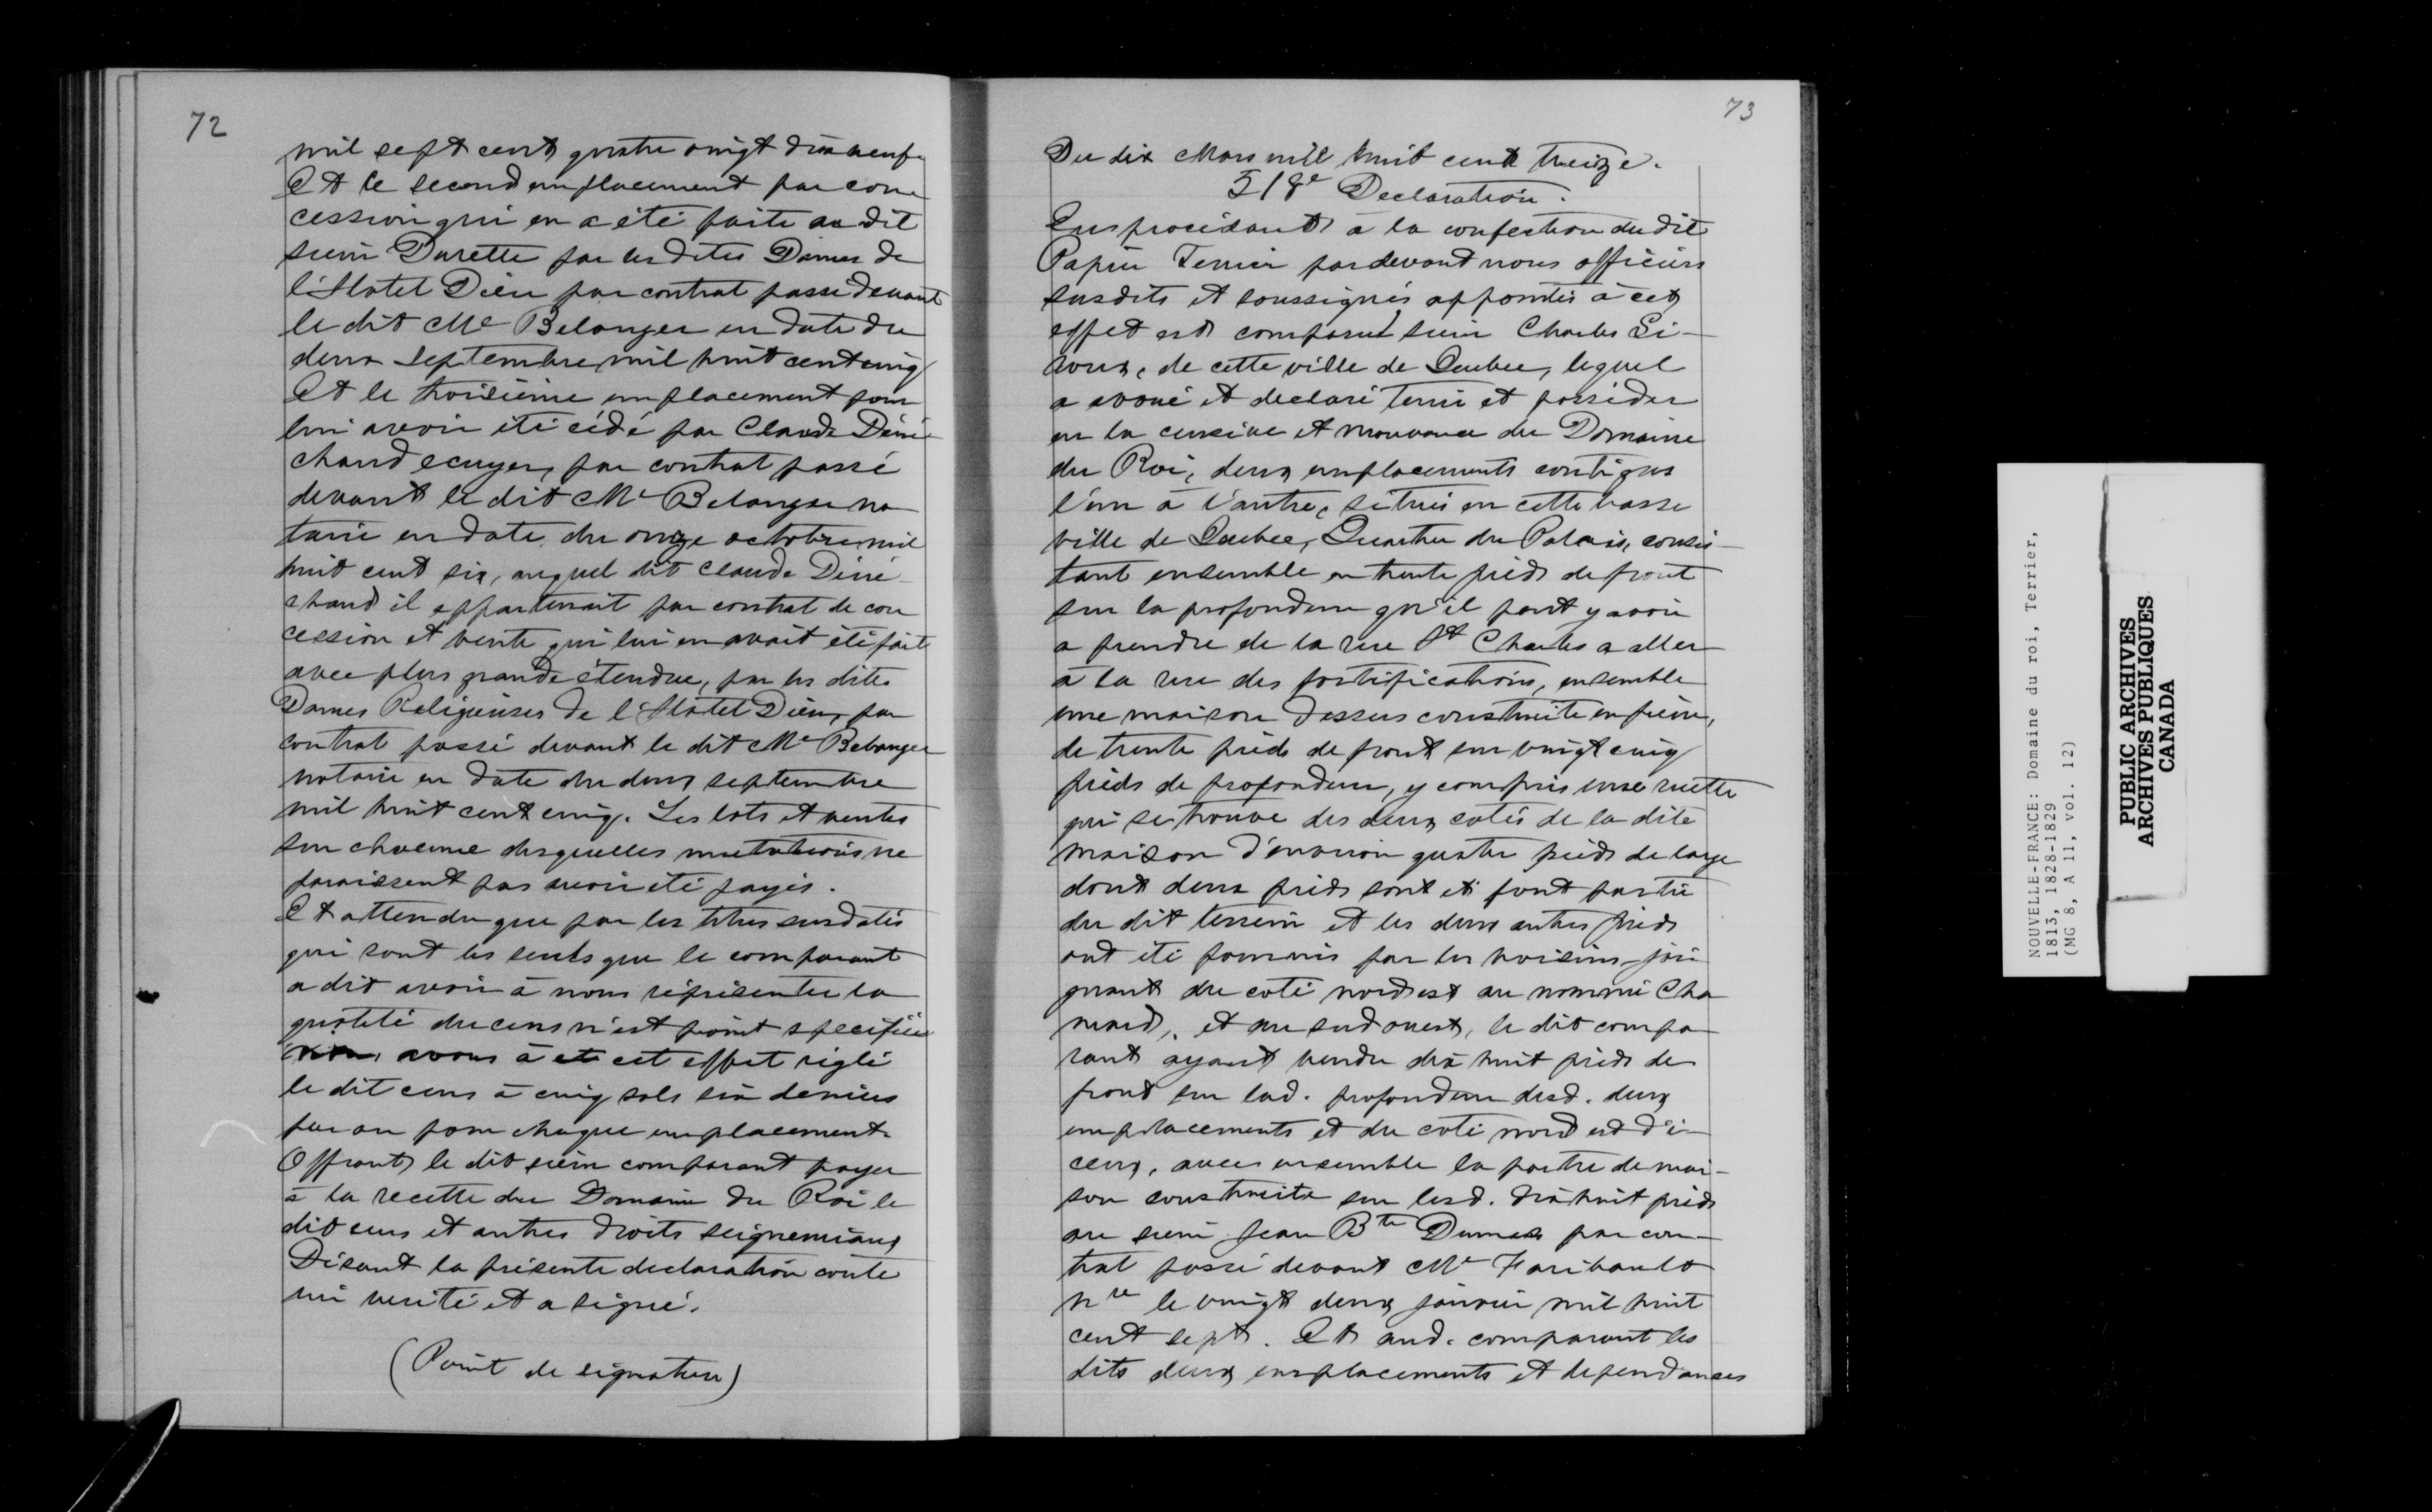 72
mil sept cent quatre vingt dix neuf.
Et le second emplacement par con
cession qui en a été faite au dit
sieur Durette par les dites Dames de
l'Hotel Dieu par contrat passé devant
le dit Me Belanger en date du
deux septembre mil huit cent cinq
Et le troisième emplacement pour
lui avoir été cédé par Claude Déné
chaud ecuyer, par contrat passé
devant le dit Me Belanger no
taire en date du onze octobre mil
huit cent six, auquel dit Claude Déné
chaud il appartenait par contrat de con
cession et vente qui lui en avait été fait
avec plus grande étendue, par les dites
Dames Religieuses de l'Hotel Dieu, par
contrat passé devant le dit Me Belanger
notaire en date du deux septembre
mil huit cent cinq. Les lots et ventes
sur chacune desquelles mutations ne
paraissent pas avoir été payés.
Et attendu que par les titres susdatés
qui sont les seuls que le comparant
a dit avoir à nous réprésenter la
quotité du cens n'est point specifiée
avons à cet effet réglé
le dit cens à cinq sols six deniers
par an pour chaque emplacement.
Offrant le dit sieur comparant payer
à la recette du Domaine du Roi le
dit cens et autres droits seigneuriaux
Disant la présente declaration conte
nir verité et a signé.
(Point de signature)
73
Du dix Mars mil huit cent treize.
518e Declaration.
Ens procédant à la confection du dit
Papier Terrier pardevant nous officiers
susdits et soussignés appointés à cet
effet est comparut sieur Charles Li-
voux, de cette ville de Quebec, lequel
a avoué et declaré tenir et posséder
en la censive et mouvance du Domaine
du Roi, deux emplacements contigus
l'un à l'autre, situés en cette basse
ville de Quebec, Quartier du Palais, consis-
tant ensemble en trente pieds de front
sur la profondeur qu'il peut y avoir
a prendre de la rue St Charles a aller
à la rue des fortifications, ensemble
une maison dessus construite en pierre,
de trente pieds de front sur vingt cinq
pieds de profondeur, y compris une ruette
qui se trouve des deux cotés de la dite
maison d'environ quatre pieds de large
dont deux pieds sont et font partie
du dit terrein et les deux autres pieds
ont été fournis par les voisins joi
gnant du coté nord est au nommé Cha
mard, et au sud ouest, le dit compa
rant ayant vendu dix huit pieds de
front sur lad. profondeur desd. deux
emplacements et du coté nord est d'i-
ceux, avec ensemble la partie de mai-
son construite sur lesd. dix huit pieds
au sieur Jean Bte Dumas par con-
trat passé devant Me Faribault
Nre le vingt deux janvier mil huit
cent sept. Et aud. comparant les
dits deux emplacements et dependances
NOUVELLE-FRANCE: Domaine du roi, Terrier,
1813, 1828-1829
(MG 8, A 11, vol. 12)
PUBLIC ARCHIVES
ARCHIVES PUBLIQUES
CANADA